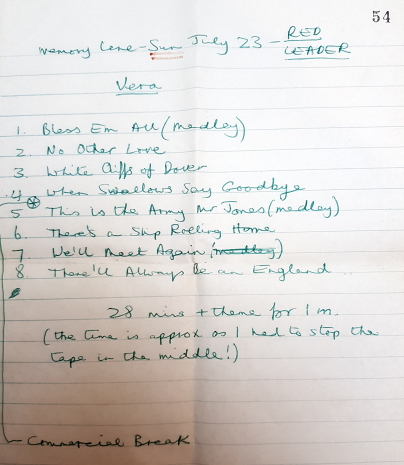 54
Memory Lane - Sun July 23 - RED LEADER
Vera
1. Bless Em All (medley)
2. No Other Love
3. White Cliffs of Dover
4 When Swallows Say Goodbye
5 This is the Army Mr Jones (medley)
6. There's a Ship Rolling Home
7 We'll Meet Again (medley)
8 There'll Always be an England
28 mins + theme for 1 m.
(the time is approx as I had to stop the
tape in the middle!)
Commercial Break